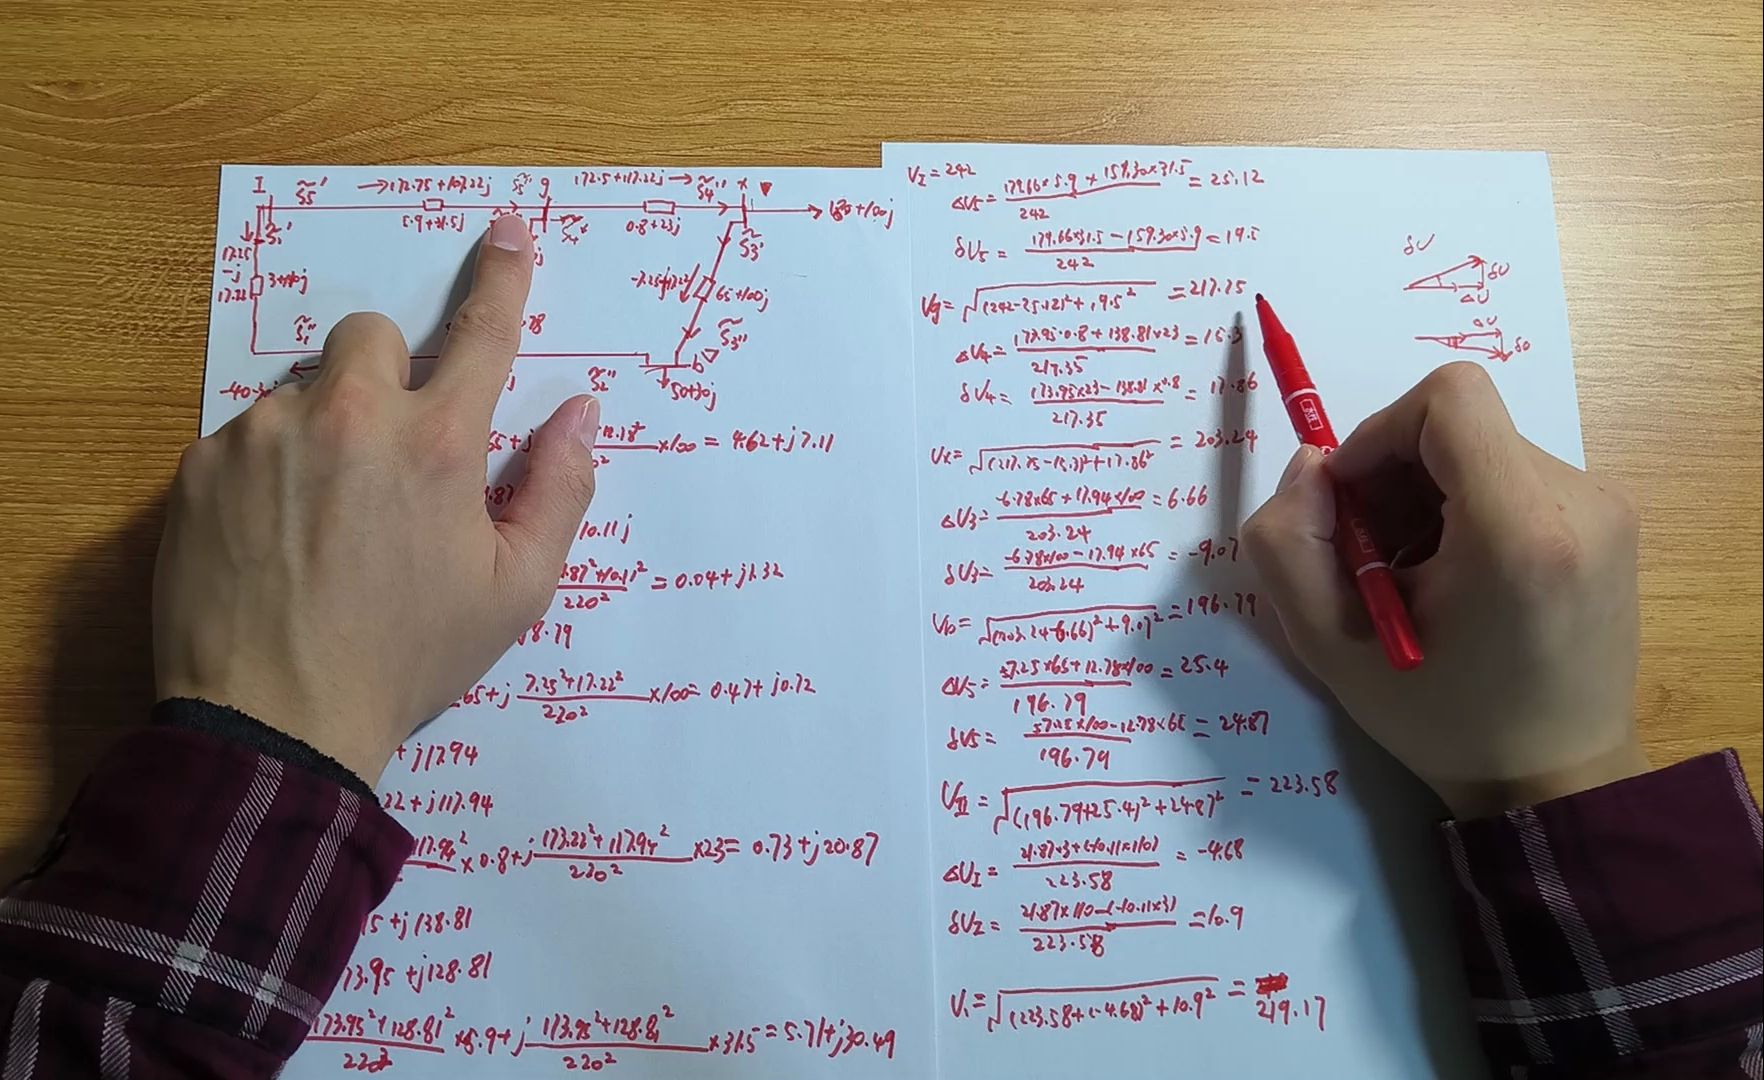 I S̃5' →172.75+107.22j S̃5'' g 172.5+117.22j → S̃4'' x
5.9+31.5j S̃4' 0.8+23j +100j
S̃1' S̃3'
17.25
-j
17.22 3+110j 65+100j
S̃1'' S̃3''
.78 b
-40-30j S̃2'' 50+30j
65+j ×100= 4.62+j7.11
.87
10.11j
.87²+10.11² / 220² = 0.04+j1.32
18.79
.65+j 7.25²+17.22² / 220² ×100= 0.47+j0.72
+j17.94
22+j117.94
117.94² ×0.8+j 173.22²+117.94² / 220² ×23= 0.73+j20.87
15+j138.81
73.95+j128.81
173.95²+128.81² / 220² ×5.9+j 173.95²+128.81² / 220² ×31.5=5.71+j30.49
VI=242
ΔV5= 179.66×5.9+159.30×31.5 / 242 =25.12
δV5= 179.66×31.5-159.30×5.9 / 242 =19.5
Vg=√(242-25.12)²+19.5² =217.75
ΔV4= 173.95×0.8+138.81×23 / 217.35 =15.3
δV4= 173.95×23-138.81×0.8 / 217.35 = 17.86
Vx=√(217.75-15.3)²+17.86² = 203.24
ΔV3= -6.78×65+17.94×100 / 203.24 =6.66
δV3= -6.78×100-17.94×65 / 203.24 = -9.07
Vb=√(203.24-6.66)²+9.07² =196.79
ΔV5= 37.25×65+12.78×100 / 196.79 =25.4
δV5= 57.25×100-12.78×65 / 196.79 = 24.87
VII=√(196.79+25.4)²+24.87² = 223.58
ΔUI= 21.87×3+(-10.11×110) / 223.58 = -4.68
δVI= 21.87×110-(-10.11×3) / 223.58 =10.9
V1=√(223.58+(-4.68))²+10.9² = 219.17
δU
δU
ΔU
ΔU
δU